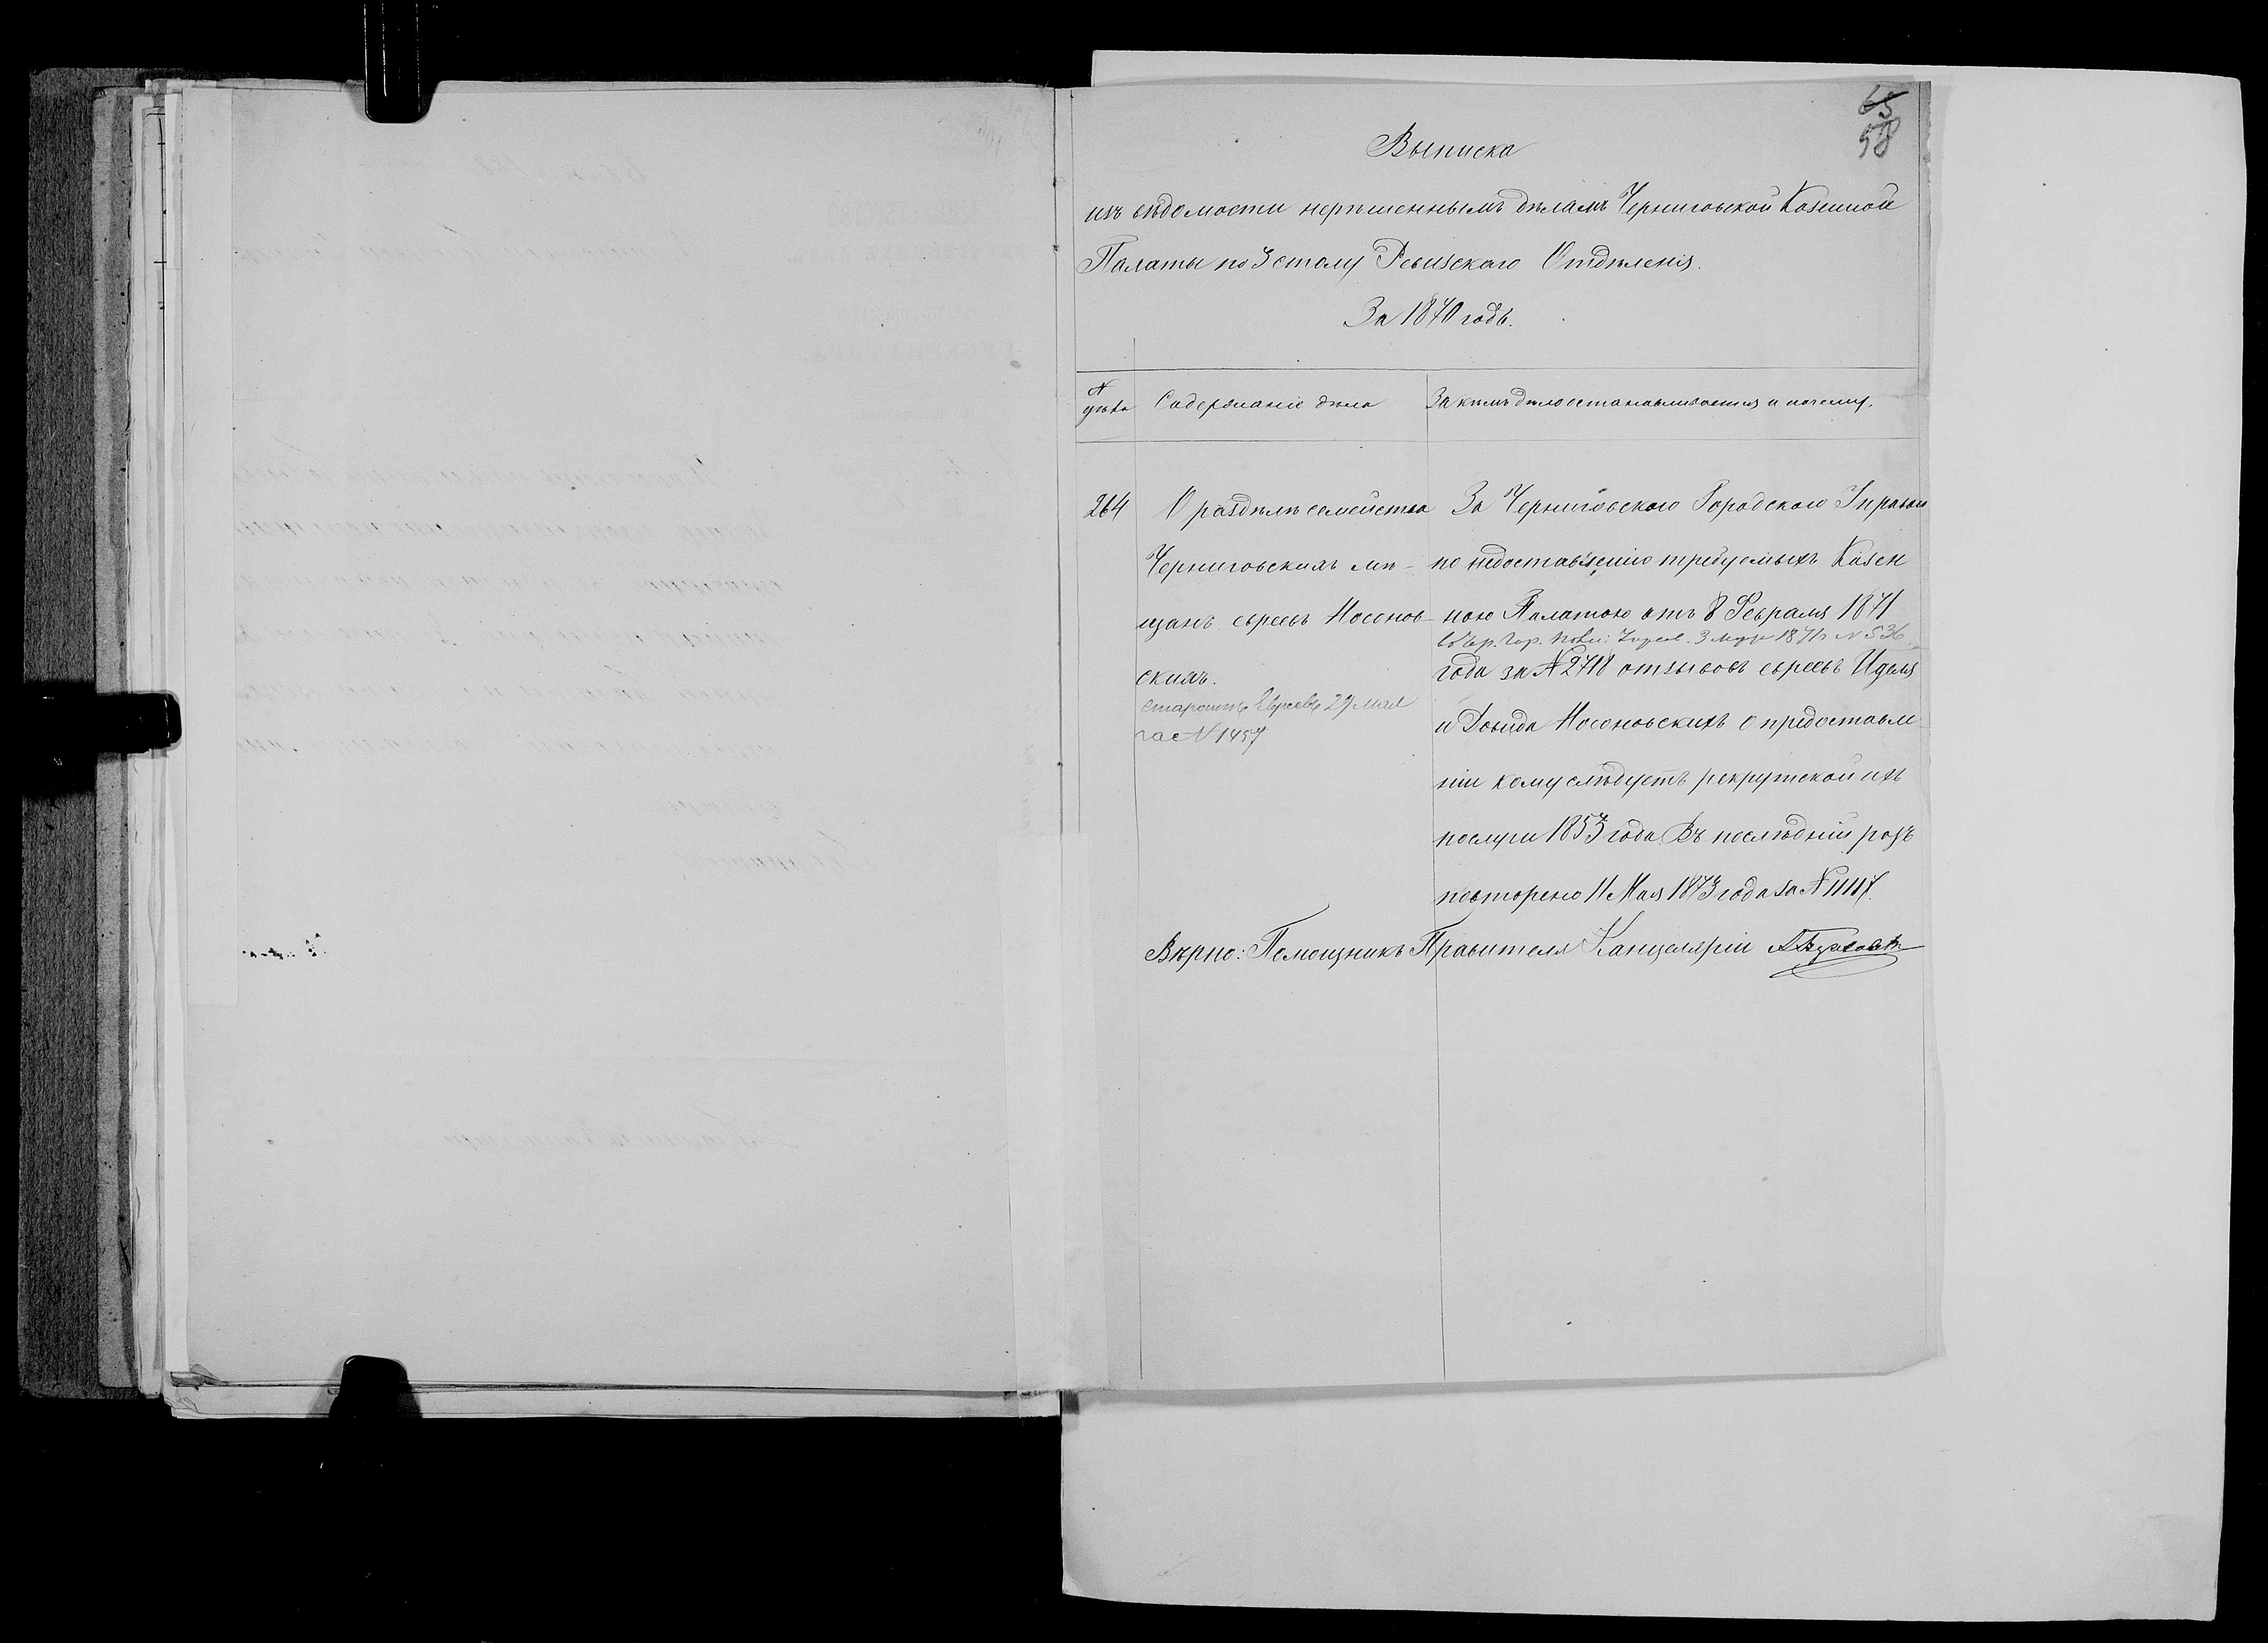 65
58
Выписка
изъ вѣдомости нерѣшеннымъ дѣламъ Черниговской Казенной
Палаты по 3 столу Ревизскаго Отдѣленія.
За 1870 годъ.
№
Содержаніе дѣла
За кѣмъ дѣло останавливается и почему.
264
О раздѣлѣ семейства
Черниговскихъ мѣ-
щанъ евреевъ Носонов
скихъ.
старостѣ Евреевъ 29 мая
за № 1457
За Черниговскаго Городскаго Управы
по недоставленію требуемыхъ Казен
ною Палатою отъ 8 Февраля 1871
3 1871 № 536
года за № 2718 отзывовъ евреевъ Иделя
и Довида Носоновскихъ о предоставле
ніи кому слѣдуетъ рекрутской ихъ
послуги 1853 года. Въ послѣдній разъ
повторено 11 Мая 1873 года за № 11117.
Вѣрно: Помощникъ Правителя Канцеляріи